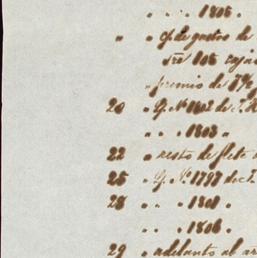 " " " 1805.
" " Gs de gastos de
sre 105 caja
" premio de 1%
20 " Gs Nº 1802 de
" " " 1803 "
22 " resto de flete
25 " Gs Nº 1797 de
28 " " " 1801 "
" " " 1806.
29 " adelanto al